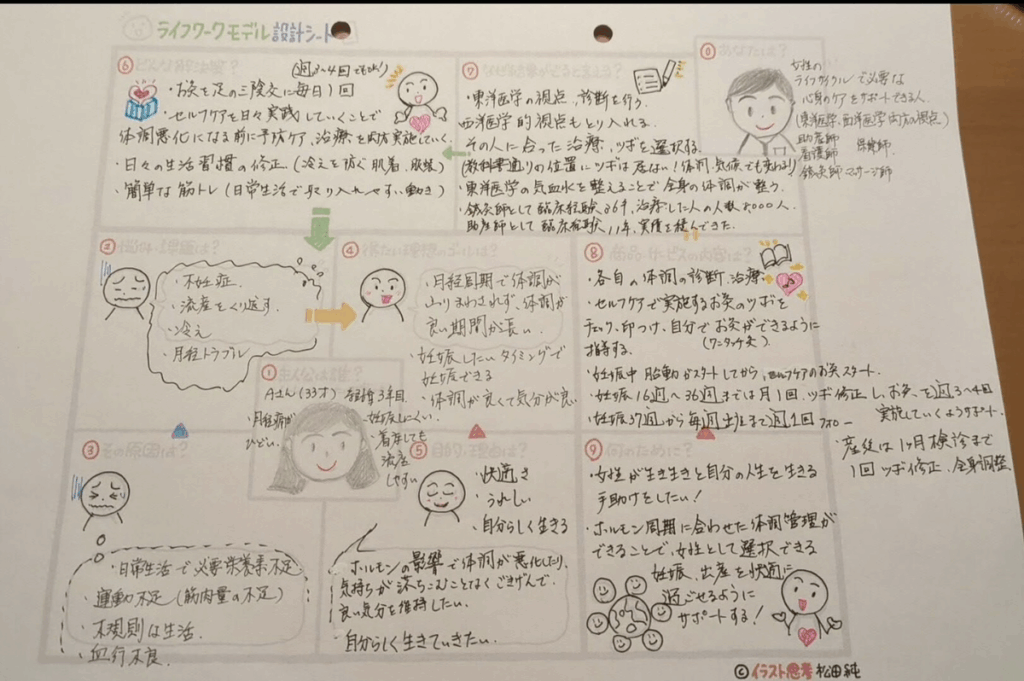 ライフワークモデル設計シート
⓪あなたは？
女性の
ライフサイクルで必要な
心身のケアをサポートできる人。
(東洋医学、西洋医学両方の視点)
助産師 保健師。
看護師
鍼灸師マッサージ師
①主人公は誰？
Aさん(33才) 結婚3年目
・月経痛が
ひどい。
・妊娠しにくい。
・着床しても
流産
しやすい
②悩み・課題は？
・不妊症
・流産をくり返す
・冷え
・月経トラブル
③その原因は？
・日常生活で必要栄養素不足
・運動不足(筋肉量の不足)
・不規則な生活。
・血行不良
④得たい理想のゴールは？
・月経周期で体調が
ふりまわされず、体調が
良い期間が長い。
・妊娠したいタイミングで
妊娠できる
・体調が良くて気分が良い
⑤目的・理由は？
・快適さ
・うれしい
・自分らしく生きる
ホルモンの影響で体調が悪化したり、
気持ちが落ちこむことなくごきげんで、
良い気分を維持したい。
自分らしく生きていきたい。
⑥どんな解決策？
(週3〜4回でもOK!)
・お灸を足の三陰交に毎日1回
・セルフケアを日々実践していくことで
体調悪化になる前に予防ケア、治療を両方実施していく。
・日々の生活習慣の修正。(冷えを防ぐ肌着、服装)
・簡単な筋トレ(日常生活で取り入れやすい動き)
⑦
・東洋医学の視点、診断を行う。
西洋医学的視点もとり入れる。
その人に合った治療、ツボを選択する。
(教科書通りの位置にツボは居ない!体調、気候でも変わる!)
・東洋医学の気血水を整えることで全身の体調が整う。
・鍼灸師として臨床経験
助産師として臨床経験11年、実績を積んできた。
⑧商品・サービスの内容は？
・各自の体調の診断、治療
・セルフケアで実施するお灸のツボを
チェック、印つけ、自分でお灸ができるように
指導する。 (ワンタッチ灸)
・妊娠中 胎動がスタートしてから、セルフケアのお灸スタート。
・妊娠16週〜36週までは月1回、ツボ修正し、お灸を週3〜4回
実施していくようサポート。
・妊娠37週から毎週出産まで週1回フォロー
・産後は1ヶ月検診まで
1回ツボ修正、全身調整
⑨何のために？
・女性が生き生きと自分の人生を生きる
手助けをしたい!
・ホルモン周期に合わせた体調管理が
できることで、女性として選択できる
妊娠、出産を快適に
過ごせるように
サポートする!
©イラスト思考 松田純